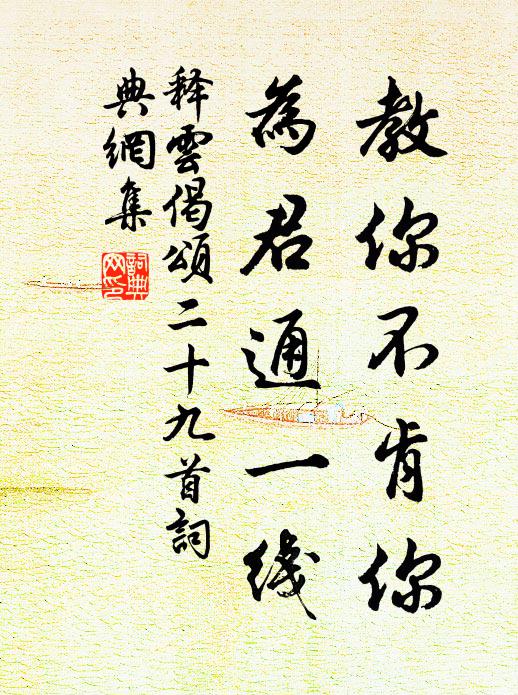 教你不肯你
為君通一綫
释雲偈頌二十九首詞
典網集
詞典
网印